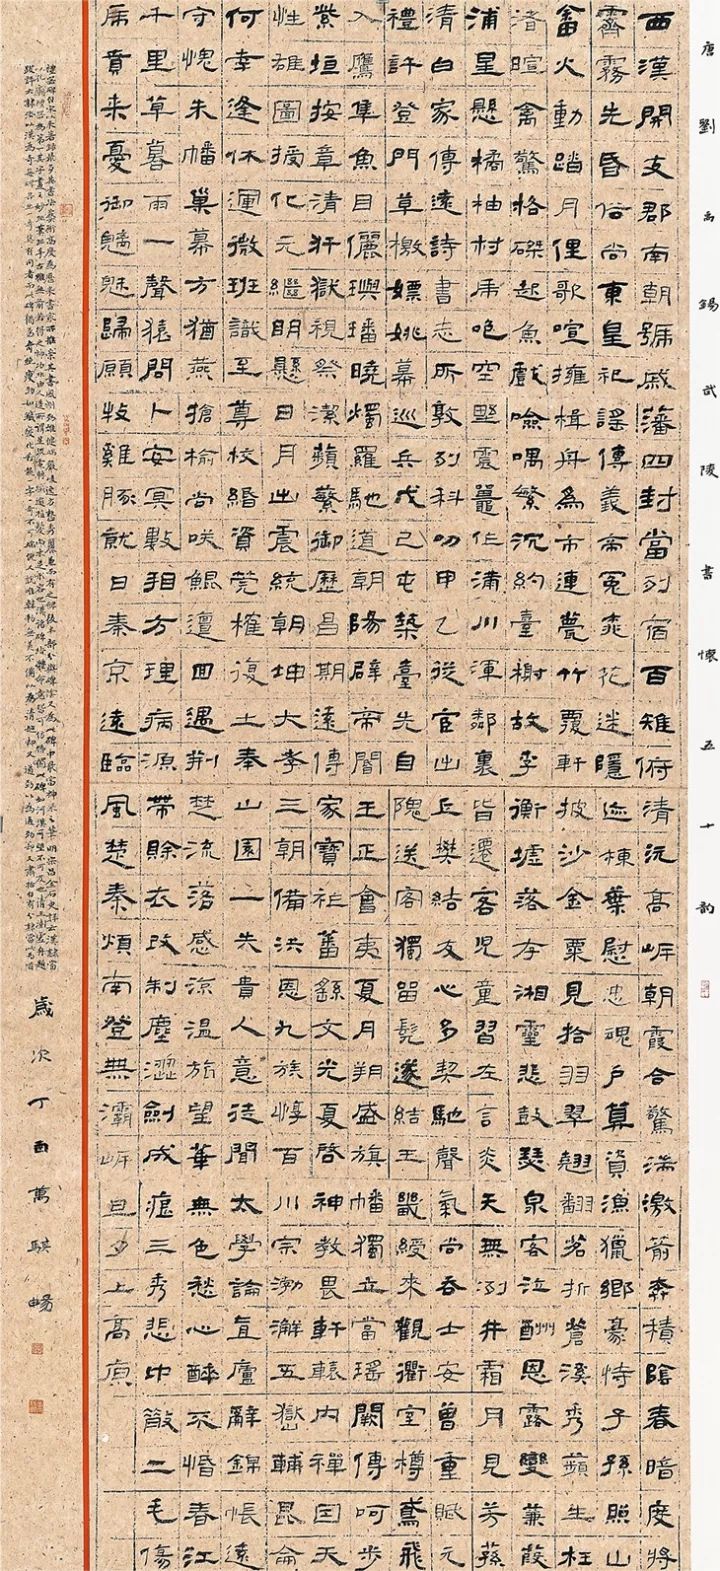 唐劉禹錫武陵書懷五十韵
西漢開支郡南朝號戚藩四封當列宿百雉俯清沅高岸朝霞合驚湍激箭奔積陰春暗度將
霽霧先昏俗尚東皇祀謠傳義帝冤桃花迷隱跡楝葉慰忠魂戶算資漁獵鄉豪恃子孫照山
畬火動踏月俚歌喧擁楫舟為市連甍竹覆軒披沙金粟見拾羽翠翹翻茗折蒼溪秀蘋生枉
渚暄禽驚格磔起魚戲噞喁繁沉約臺榭故李衡墟落存湘靈悲鼓瑟泉客泣酬恩露變蒹葭
浦星懸橘柚村虎咆空野震鼉作滿川渾鄰裏皆遷客兒童習左言炎天無冽井霜月見芳蓀
清白家傳遠詩書志所敦列科叨甲乙從宦出丘樊結友心多契馳聲氣尚吞士安曾重賦元
禮許登門草檄嫖姚幕巡兵戊己屯築臺先自隗送客獨留髡遂結王畿綬來觀衢室樽鳶飛
入鷹隼魚目儷璵璠曉燭羅馳道朝陽辟帝閽王正會夷夏月朔盛旗幡獨立當瑤闕傳呵步
紫垣按章清犴獄視祭潔蘋蘩御歷昌期遠傳家寶祚蕃繇文光夏啓神教畏軒轅內禪因天
性雄圖授化元繼明懸日月出震統朝坤大孝三朝備洪恩九族惇百川宗渤澥五嶽輔崑崙
何幸逢休運微班識至尊校緡資筦榷復土奉山園一失貴人意徒聞太學論直廬辭錦帳遠
守愧朱幡巢幕方猶燕搶榆尚咲鯤邅回遇荊楚流落感涼溫旅望華無色愁心醉不惛春江
千里草暮雨一聲猿問卜安冥數相方理病源帶賒衣改制塵澀劍成痕三秀悲中散二毛傷
虎賁來憂御魑魅歸願牧雞豚就日秦京遠臨風楚奏煩南登無灞岸旦夕上高原
歲次丁酉萬騏暢